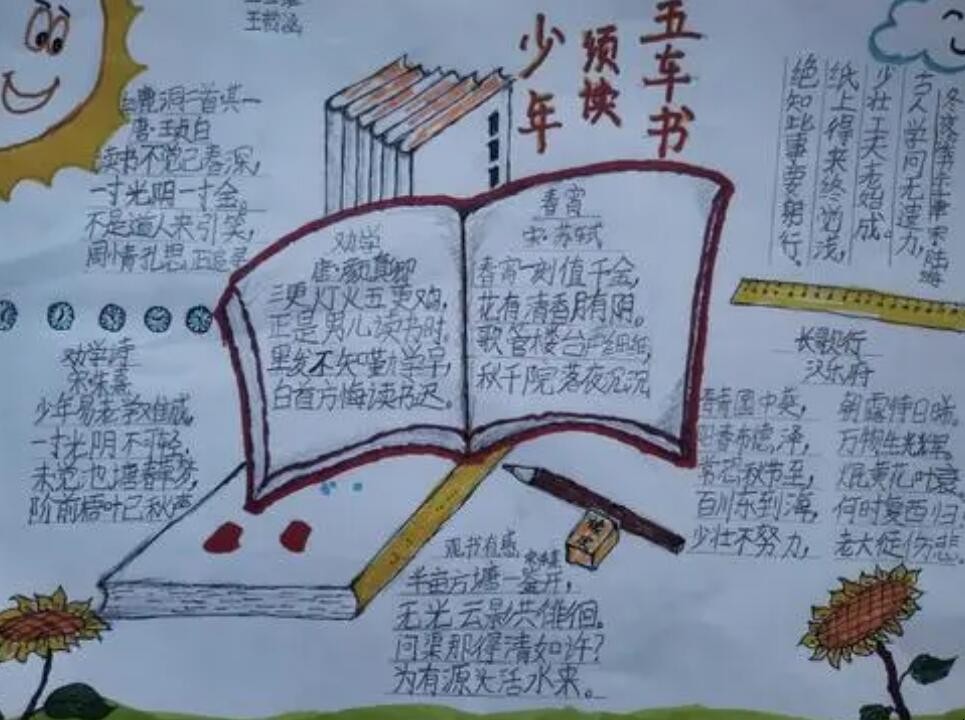 王
少年
须读
五车书
白鹿洞二首其一
唐·王贞白
读书不觉已春深，
一寸光阴一寸金。
不是道人来引笑，
周情孔思正追寻
劝学
唐·颜真卿
三更灯火五更鸡，
正是男儿读书时。
黑发不知勤学早，
白首方悔读书迟。
春宵
宋·苏轼
春宵一刻值千金，
花有清香月有阴。
歌管楼台声细细，
秋千院落夜沉沉
冬夜读书 宋·陆游
古人学问无遗力，
少壮工夫老始成。
纸上得来终觉浅，
绝知此事要躬行。
劝学诗
宋·朱熹
少年易老学难成，
一寸光阴不可轻，
未觉池塘春草梦，
阶前梧叶已秋声
长歌行
汉乐府
青青园中葵，朝露待日晞。
阳春布德泽，万物生光辉。
常恐秋节至，焜黄花叶衰
百川东到海，何时复西归
少壮不努力，老大徒伤悲
观书有感
宋朱熹
半亩方塘一鉴开，
天光云影共徘徊。
问渠那得清如许？
为有源头活水来。